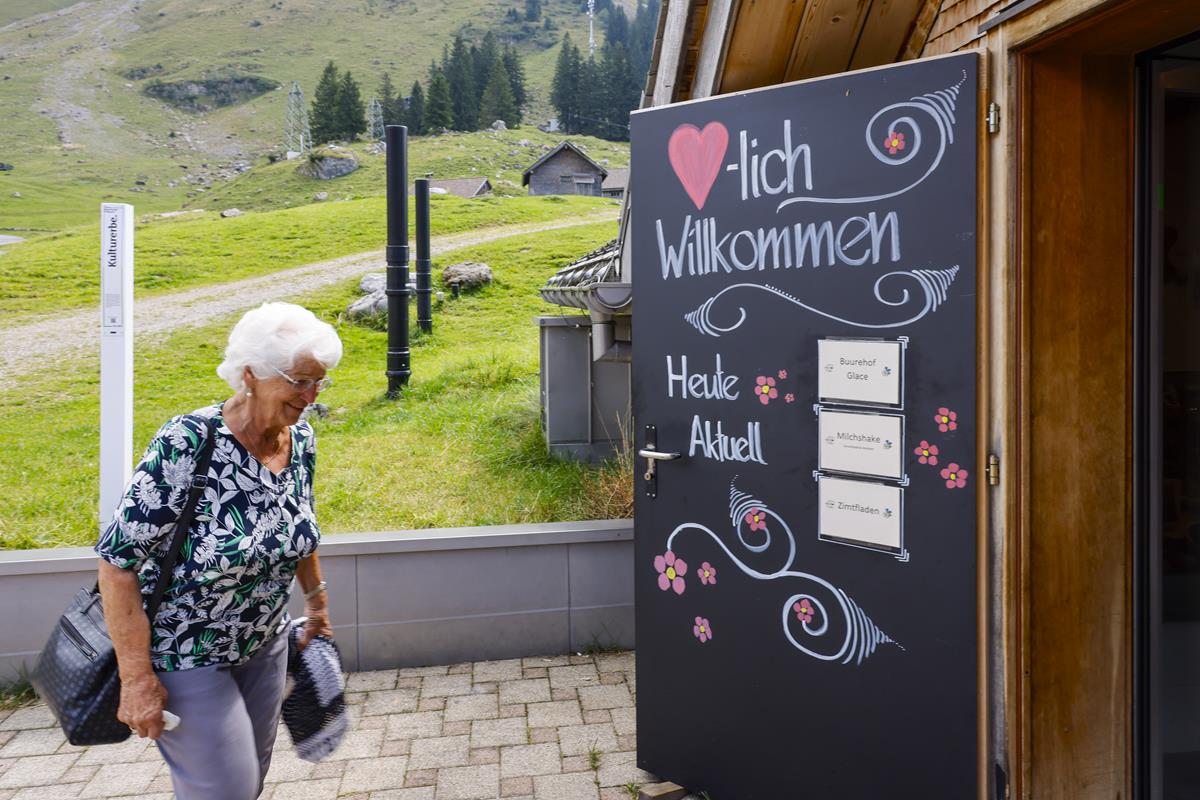 Kulturerbe.
-lich
Willkommen
Heute
Aktuell
Buurehof
Glace
Milchshake
Zimtfladen